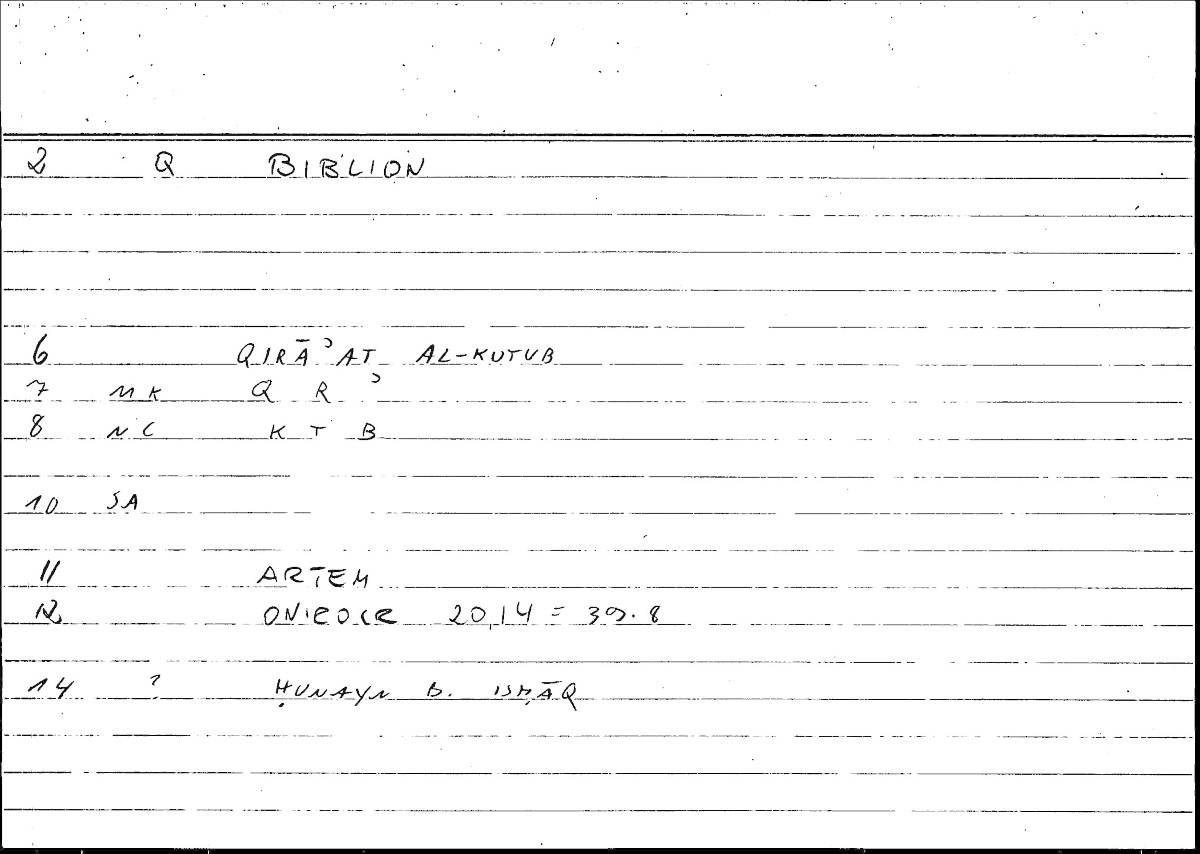 2 Q BIBLION
6 QIRĀʾAT AL-KUTUB
7 MK Q R ʾ
8 NC K T B
10 SA
11 ARTEM
12 ONIROCR 20,14 = 39.8
14 ? ḤUNAYN B. ISḤĀQ